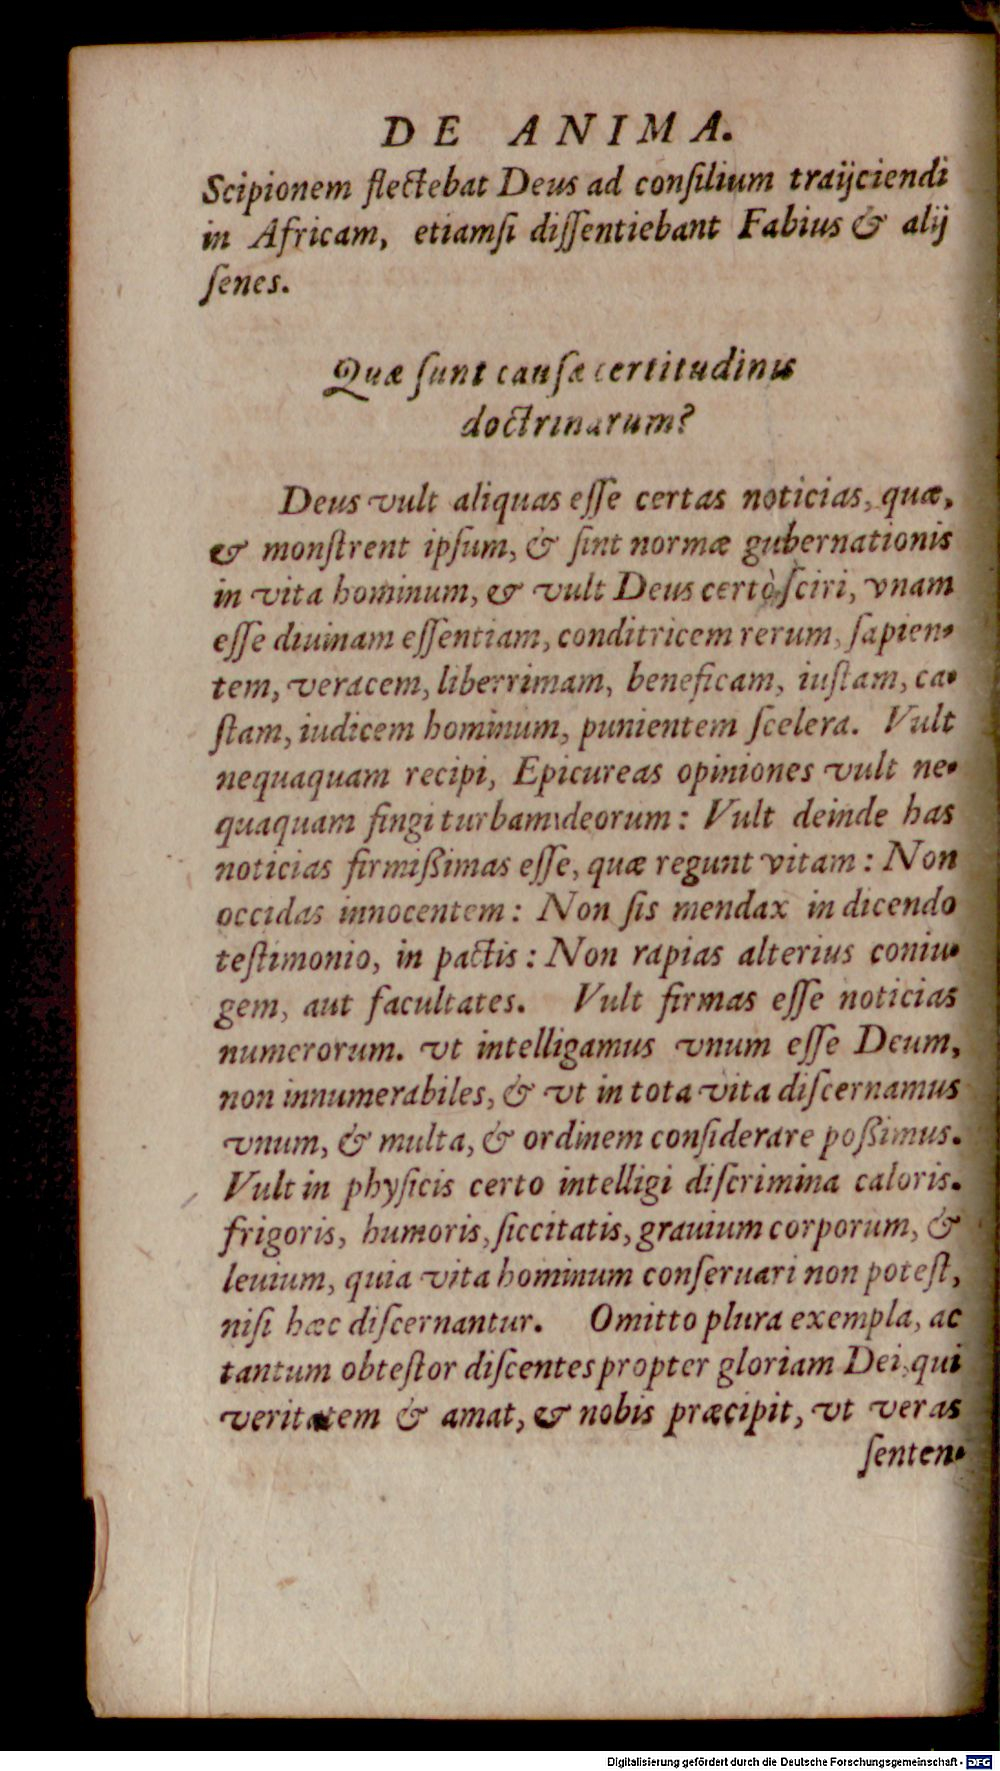 DE ANIMA.
Scipionem flectebat Deus ad conſilium traijciendi
in Africam, etiamſi diſſentiebant Fabius & alij
ſenes.
Quæ ſunt cauſæ certitudinis
doctrinarum?
Deus vult aliquas eſſe certas noticias, quæ,
& monſtrent ipſum, & ſint normæ gubernationis
in vita hominum, & vult Deus certò ſciri, vnam
eſſe diuinam eſſentiam, conditricem rerum, ſapien-
tem, veracem, liberrimam, beneficam, iuſtam, ca-
ſtam, iudicem hominum, punientem ſcelera. Vult
nequaquam recipi, Epicureas opiniones vult ne-
quaquam fingi turbam deorum: Vult deinde has
noticias firmißimas eſſe, quæ regunt vitam: Non
occidas innocentem: Non ſis mendax in dicendo
teſtimonio, in pactis: Non rapias alterius coniu-
gem, aut facultates. Vult firmas eſſe noticias
numerorum. vt intelligamus vnum eſſe Deum,
non innumerabiles, & vt in tota vita diſcernamus
vnum, & multa, & ordinem conſiderare poßimus.
Vult in phyſicis certo intelligi diſcrimina caloris.
frigoris, humoris, ſiccitatis, grauium corporum, &
leuium, quia vita hominum conſeruari non poteſt,
niſi hæc diſcernantur. Omitto plura exempla, ac
tantum obteſtor diſcentes propter gloriam Dei, qui
veritatem & amat, & nobis præcipit, vt veras
ſenten-
Digitalisierung gefördert durch die Deutsche Forschungsgemeinschaft - DFG